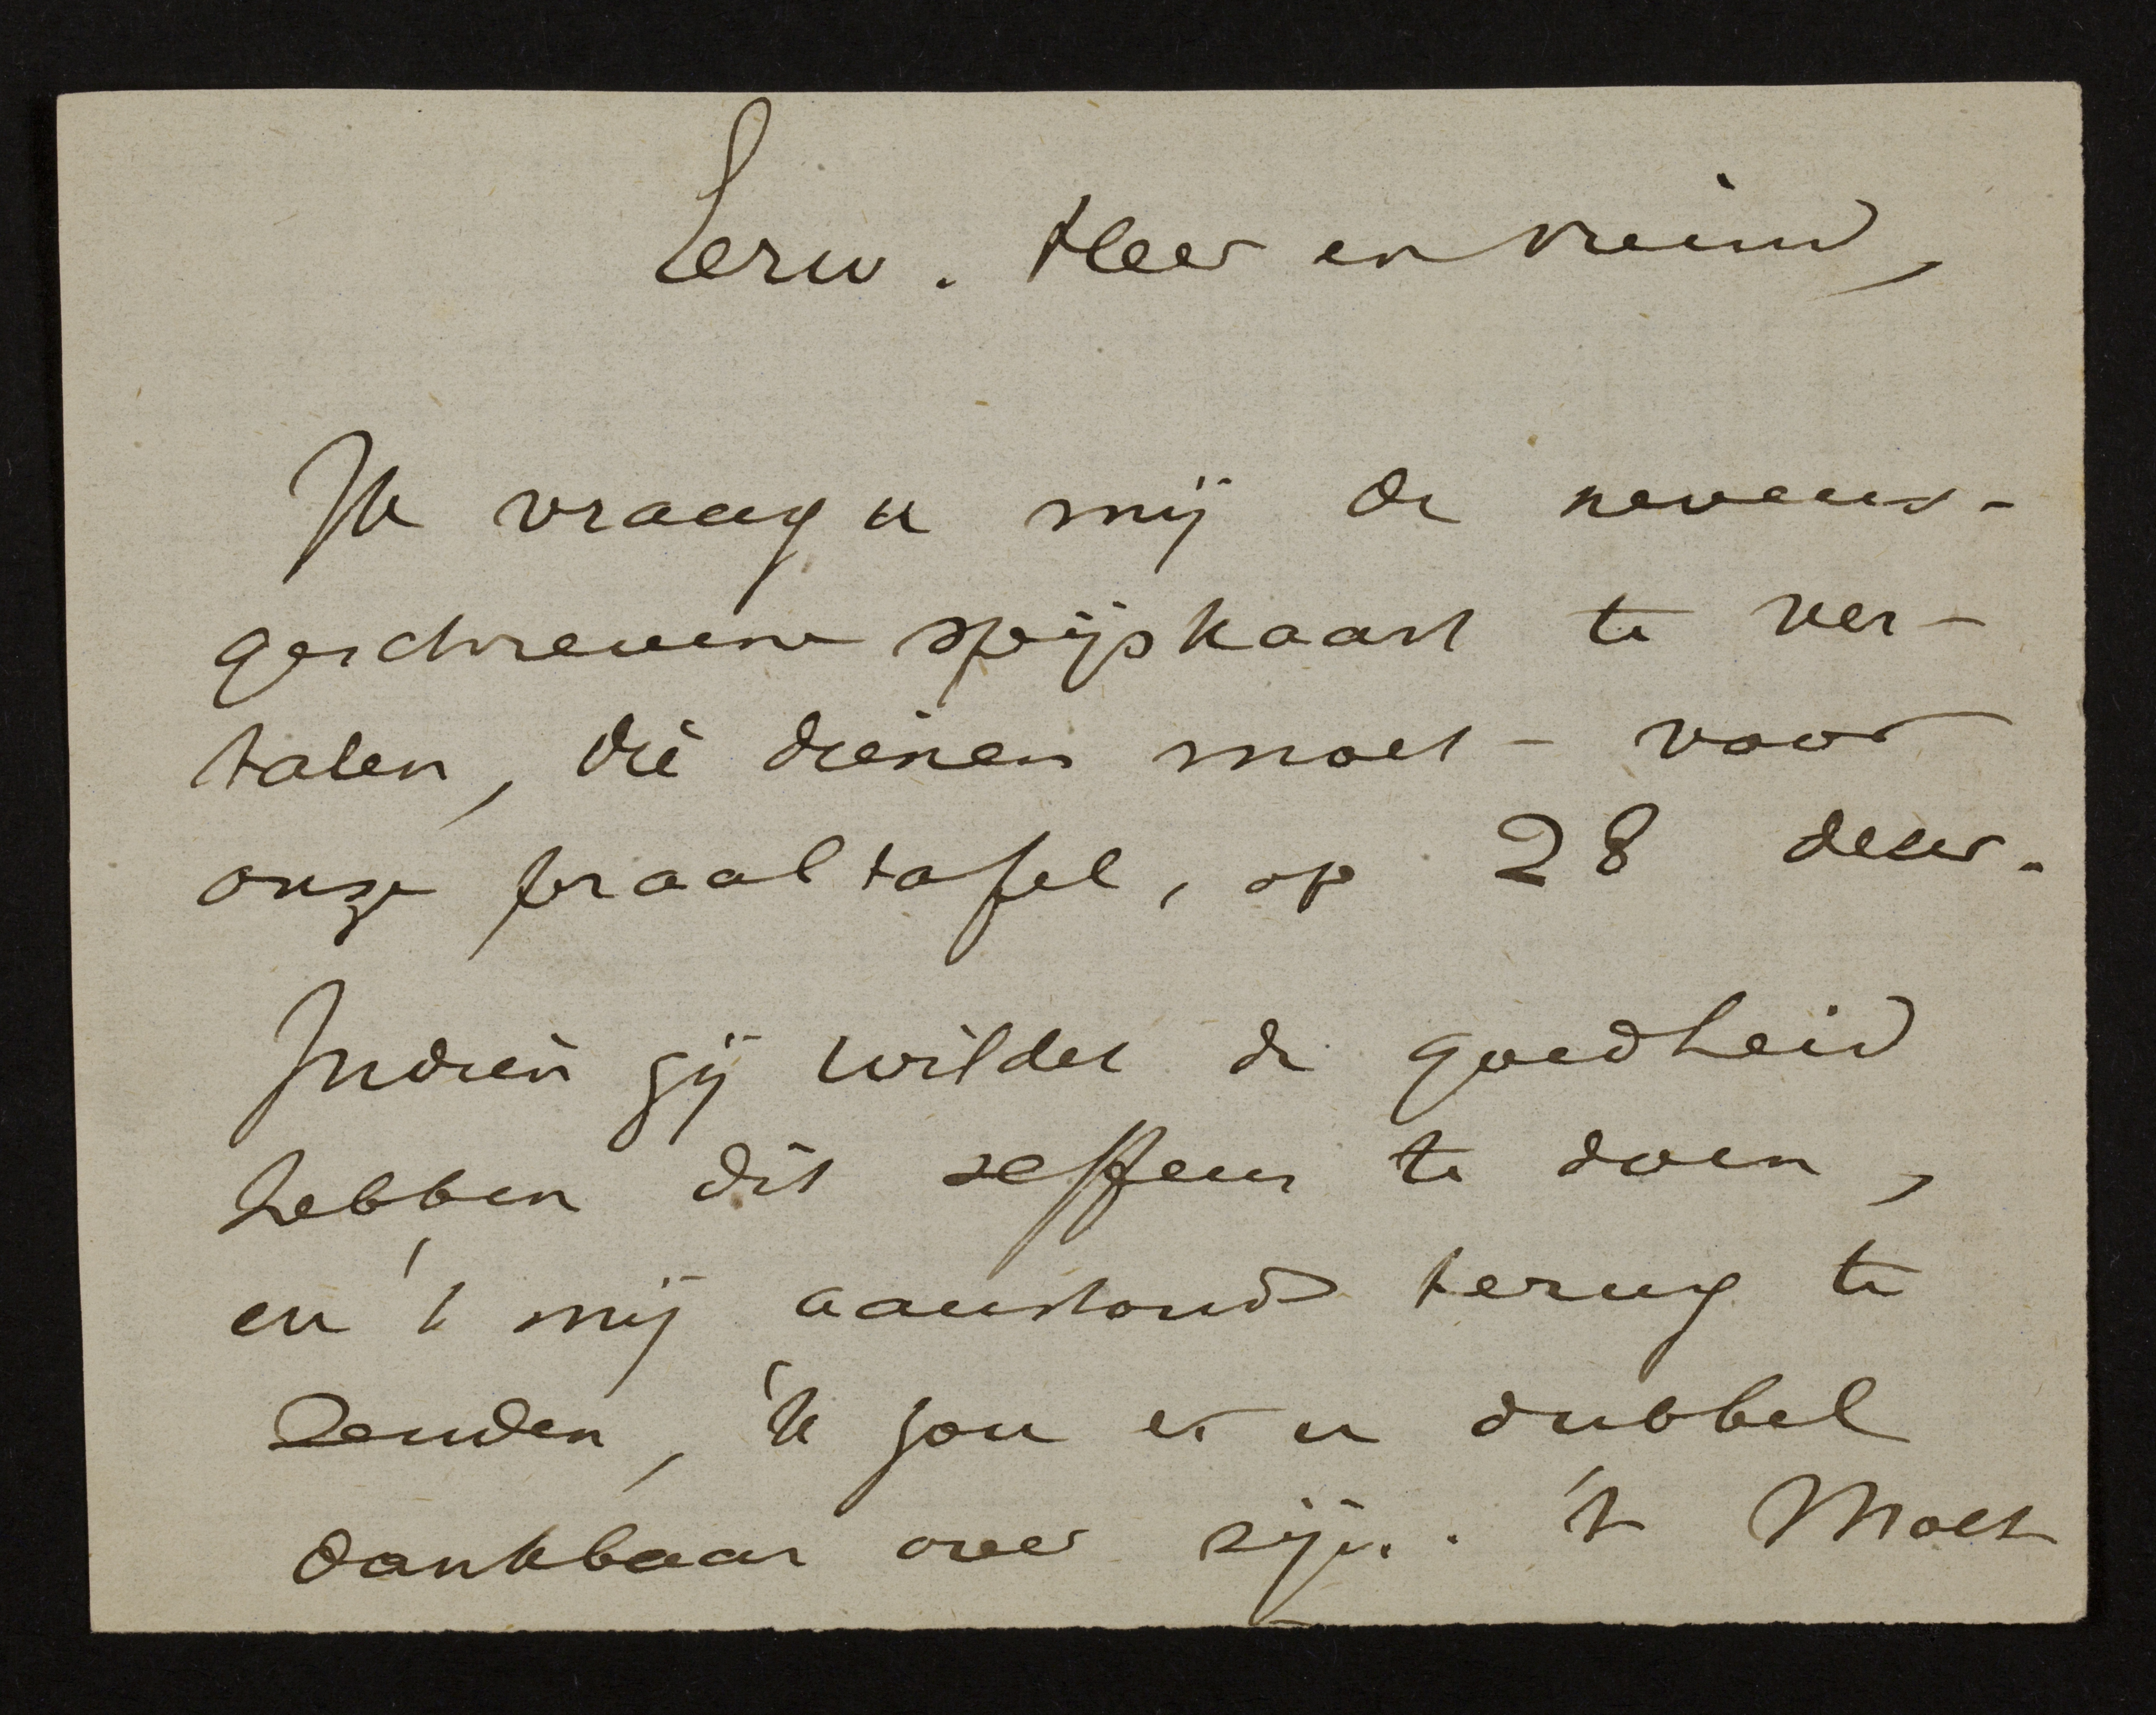 Eerw. Heer en vriend,
Ik vraag u mij de nevens-
geschrevene spijskaart te ver-
talen, die dienen moet - voor
onze praaltafel, op 28 decer.
Indien gij wildet de goedheid
hebben dit seffens te doen,
en 't mij aanstond terug te
zenden, 'k zou er u dubbel
dankbaar over zijn. 't Moet